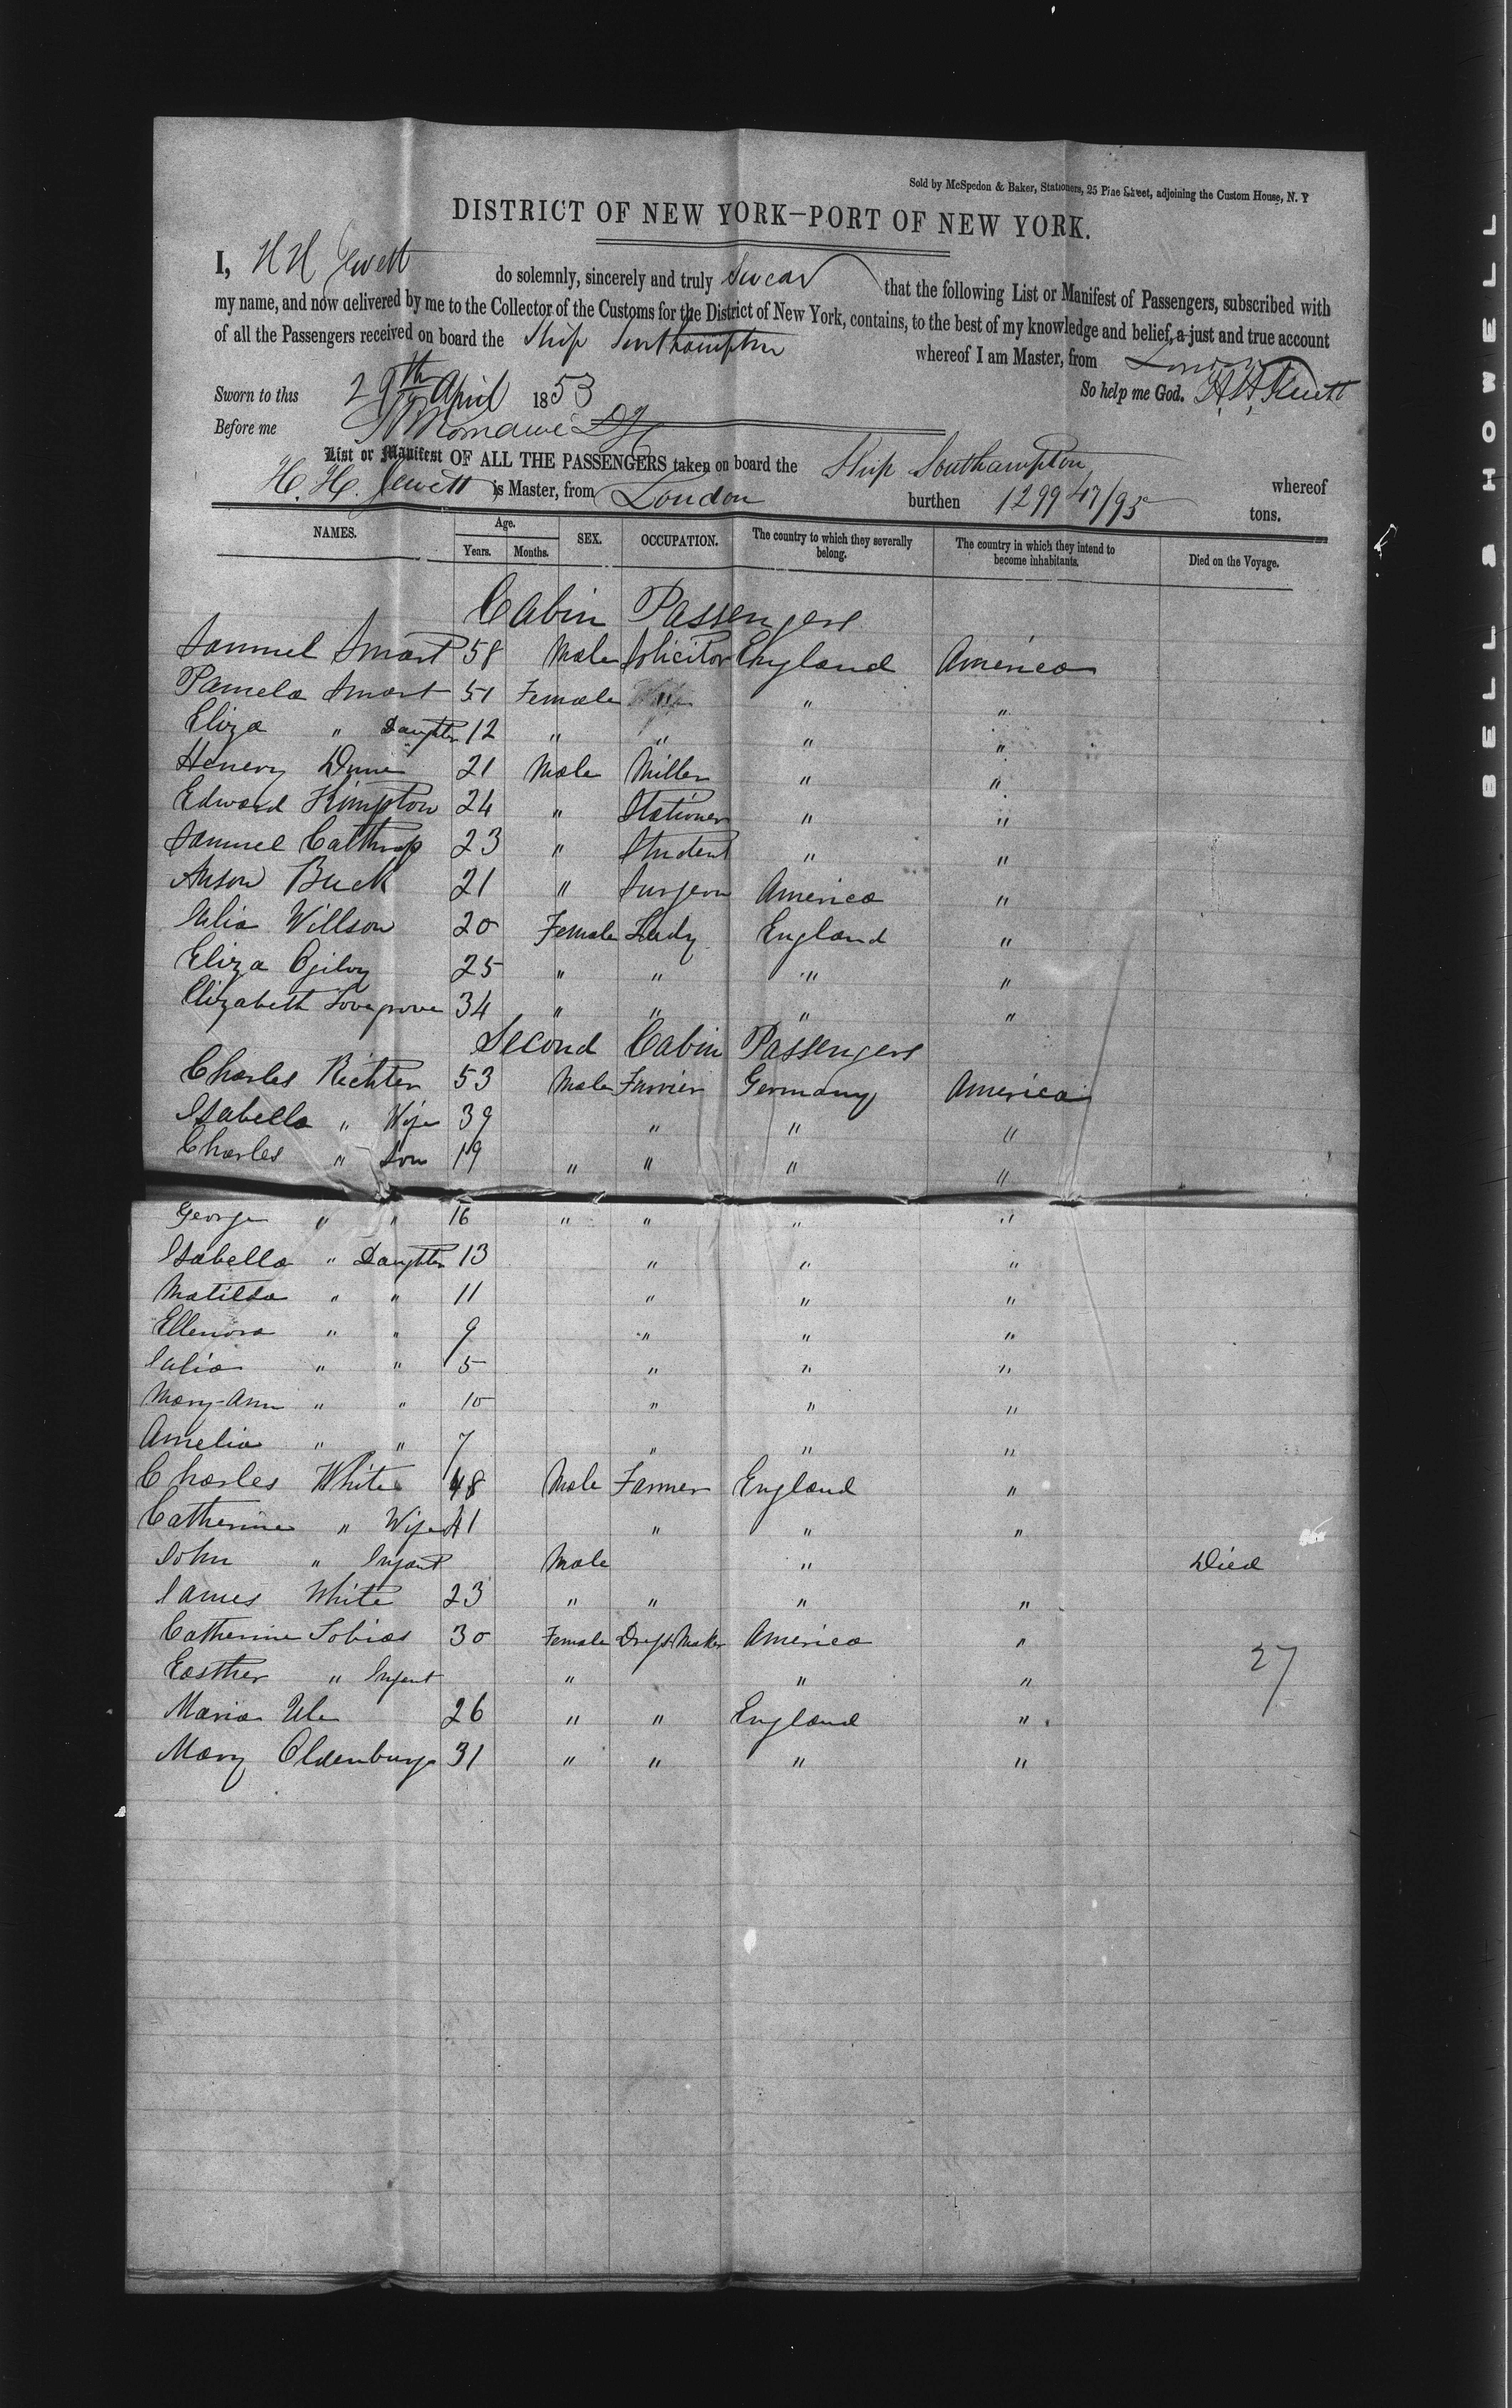 Sold by McSpedon & Baker, Stationers, 25 Pine Street, adjoining the Custom House, N. Y
DISTRICT OF NEW YORK—PORT OF NEW YORK.
I, H H Jewett do solemnly, sincerely and truly Swear that the following List or Manifest of Passengers, subscribed with
my name, and now delivered by me to the Collector of the Customs for the District of New York, contains, to the best of my knowledge and belief, a just and true account
of all the Passengers received on board the Ship Southampton whereof I am Master, from London
So help me God. H. H. Jewett
Sworn to this 29th April 1853
Before me
List or Manifest OF ALL THE PASSENGERS taken on board the Ship Southampton, whereof
H. H. Jewett is Master, from London burthen 1299 47/95 tons.
NAMES. Age. Years. Months. SEX. OCCUPATION. The country to which they severally belong. The country in which they intend to become inhabitants. Died on the Voyage.
Cabin Passengers
Samuel Smart 58 Male Solicitor England America
Pamela Smart 51 Female " " "
Eliza " Daughter 12 " " " "
Henery Dunn 21 Male Miller " "
Edward Kimpton 24 " Stationer " "
Samuel Calthrop 23 " Student " "
Anson Buck 21 " Surgeon America "
Julia Willson 20 Female Lady England "
Eliza Ogilvy 25 " " " "
Elizabeth Lovegrove 34 " " " "
Second Cabin Passengers
Charles Richter 53 Male Furrier Germany America
Isabella " Wife 39 " " "
Charles " Son 19 " " " "
George " " 16 " " " "
Isabella " Daughter 13 " " "
Matilda " " 11 " " "
Ellenora " " 9 " " "
Julia " " 5 " " "
Mary-Ann " " 10 " " "
Amelia " " 7 " " "
Charles White 48 Male Farmer England "
Catherine " Wife 41 " " "
John " Infant Male " Died
James White 23 " " " "
Catherine Tobias 30 Female Dress Maker America "
Easther " Infant " " "
27
Maria Ule 26 " " England "
Mary Oldenburg 31 " " " "
BELL & HOWELL